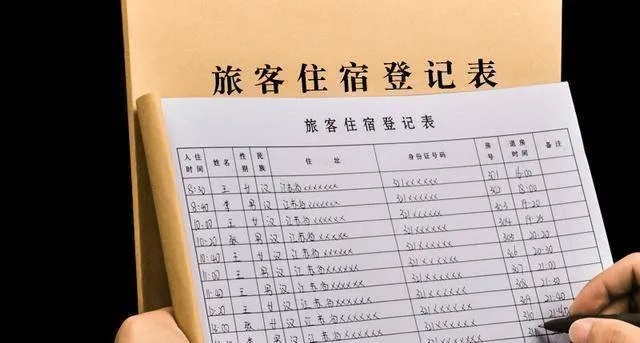 旅客住宿登记表
旅客住宿登记表
入住时间 姓名 性别 民族 住址 身份证号码 房号 退房时间 备注
8:30 王 女 汉 江苏省xxxxxx 321xxxxxx 301 16:00
8:40 李 男 汉 江苏省xxxxxx 321xxxxxx 302 18:00
10:00 王 女 汉 江苏省xxxxxx 321xxxxxx 303 19:20
10:20 张 男 汉 江苏省xxxxxx 321xxxxxx 304
10:40 王 女 汉 江苏省xxxxxx 321xxxxxx 305 20:30
11:00 王 男 汉 江苏省xxxxxx 321xxxxxx 306 21:00
11:40 王 女 汉 江苏省xxxxxx 321xxxxxx 307 21:20
女 汉 江苏省xxxxxx 321xxxxxx 308 21:40
张 女 汉 江苏省xxxxxx 321xxxxxx 309 21:40
李 男 汉 江苏省xxxxxx 321xxxxxx 310